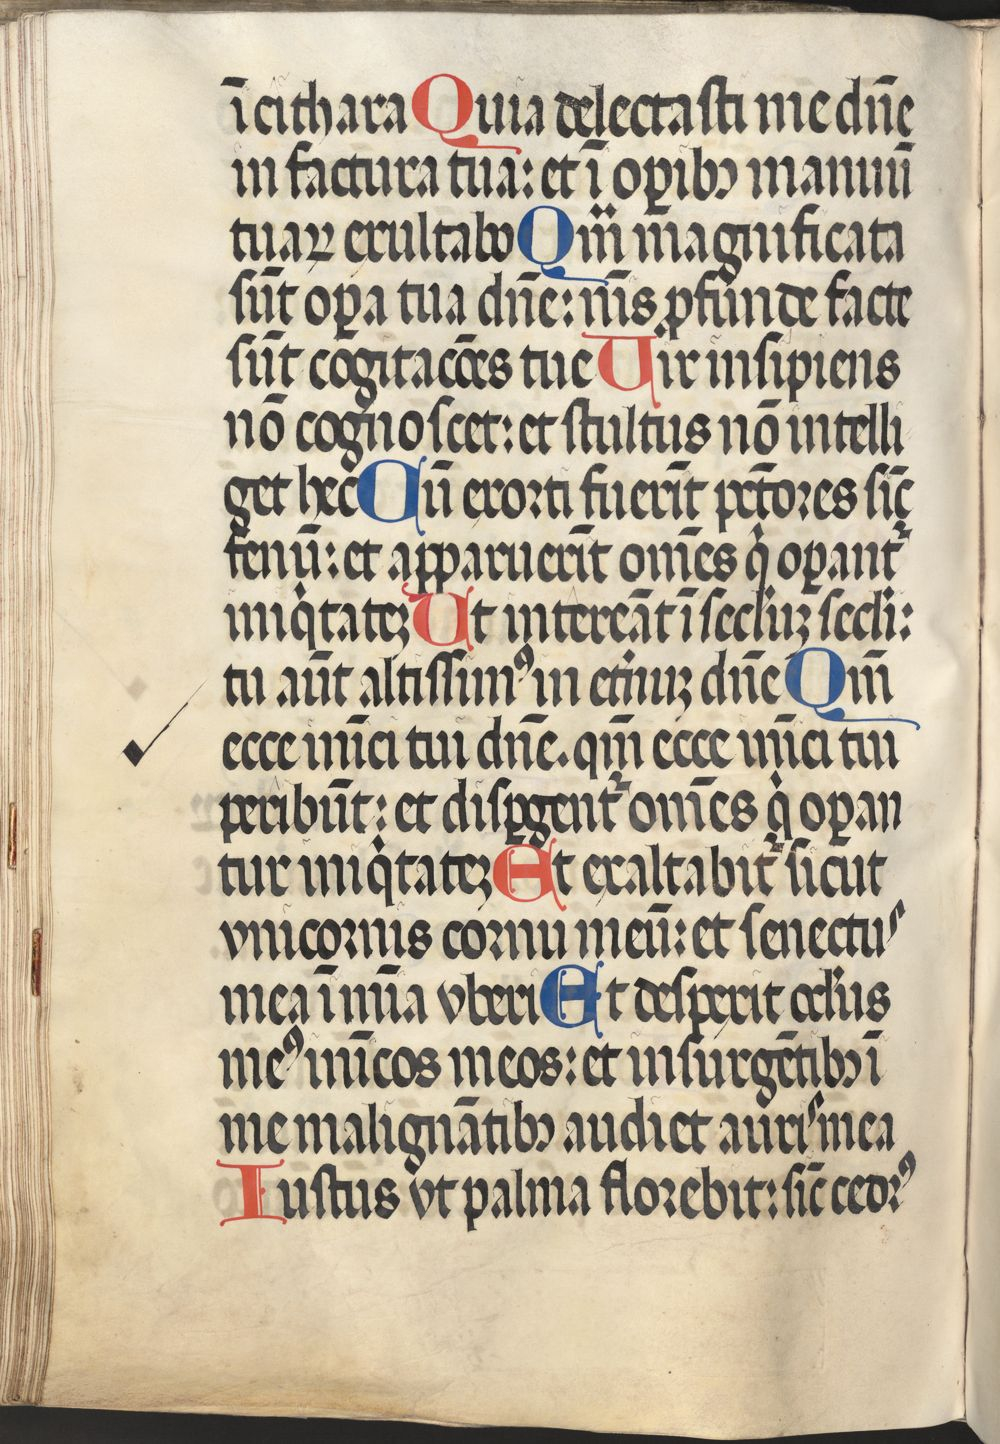 ī cithara Quia delectasti me dn̄e
in factura tua: et ī oꝑibꝫ manuū
tuaꝝ exultabo Qm̄ magnificata
sūt oꝑa tua dn̄e: nīs ꝓfūnde facte
sūt cogitacōes tue Uir insipiens
nō cognoscet: et stultus nō intelli
get hec Cū exorti fuerīt pctōres sic̄
fenū: et apparuerīt om̄es qͥ oꝑant᷑
iniqͥtateꝫ Ut intereāt ī scl̄uꝫ scl̄i:
tu aūt altissimꝰ in et̄nuꝫ dn̄e Qm̄
ecce inīci tui dn̄e. qm̄ ecce inīci tui
peribūt: et disꝑgent᷑ om̄es qͥ oꝑan
tur iniqͥtateꝫ Et exaltabit᷑ sicut
vnicornis cornu meū: et senectus
mea ī mīa vberi Et desperit ocl̄us
meꝰ inīcos meos: et insurgētibꝫ ī
me malignātibꝫ audiet auris mea
Iustus vt palma florebit: sic̄ cedrꝰ